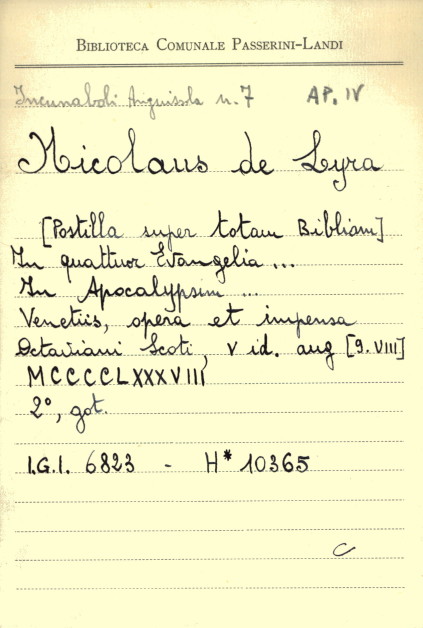 BIBLIOTECA COMUNALE PASSERINI-LANDI
Incunaboli Anguissola n. 7 AP. IV
Nicolaus de Lyra
[Postilla super totam Bibliam]
In quattuor Evangelia ...
In Apocalypsim ...
Venetiis, opera et impensa
Octaviani Scoti, V id. aug [9. VIII]
MCCCCLXXXVIII
2°, got.
I.G.I. 6823 - H* 10365
C